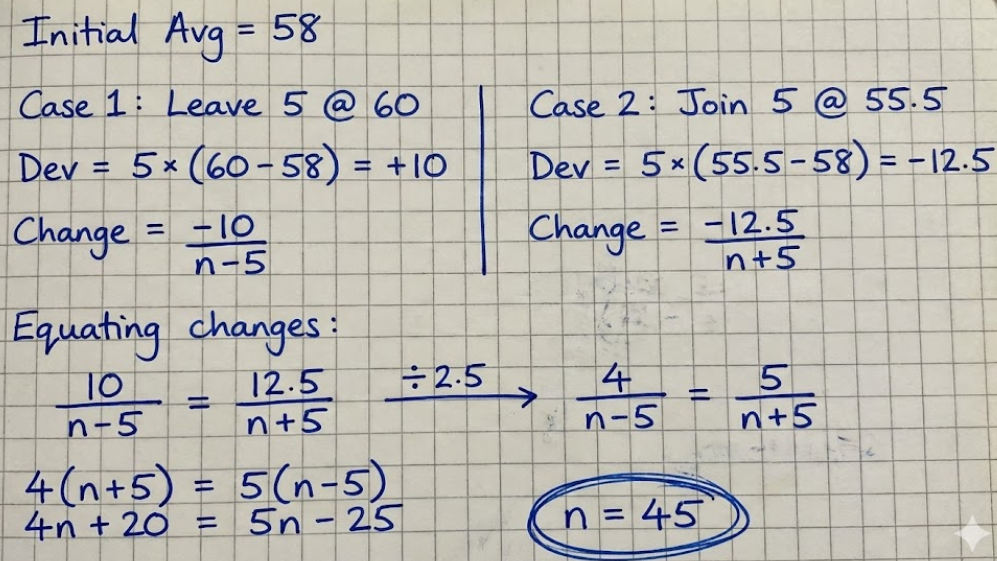 Initial Avg = 58
Case 1: Leave 5 @ 60
Dev = 5×(60-58) = +10
Change = -10/n-5
Case 2: Join 5 @ 55.5
Dev = 5×(55.5-58) = -12.5
Change = -12.5/n+5
Equating changes:
10/n-5 = 12.5/n+5 ÷2.5→ 4/n-5 = 5/n+5
4(n+5) = 5(n-5)
4n+20 = 5n-25
n = 45